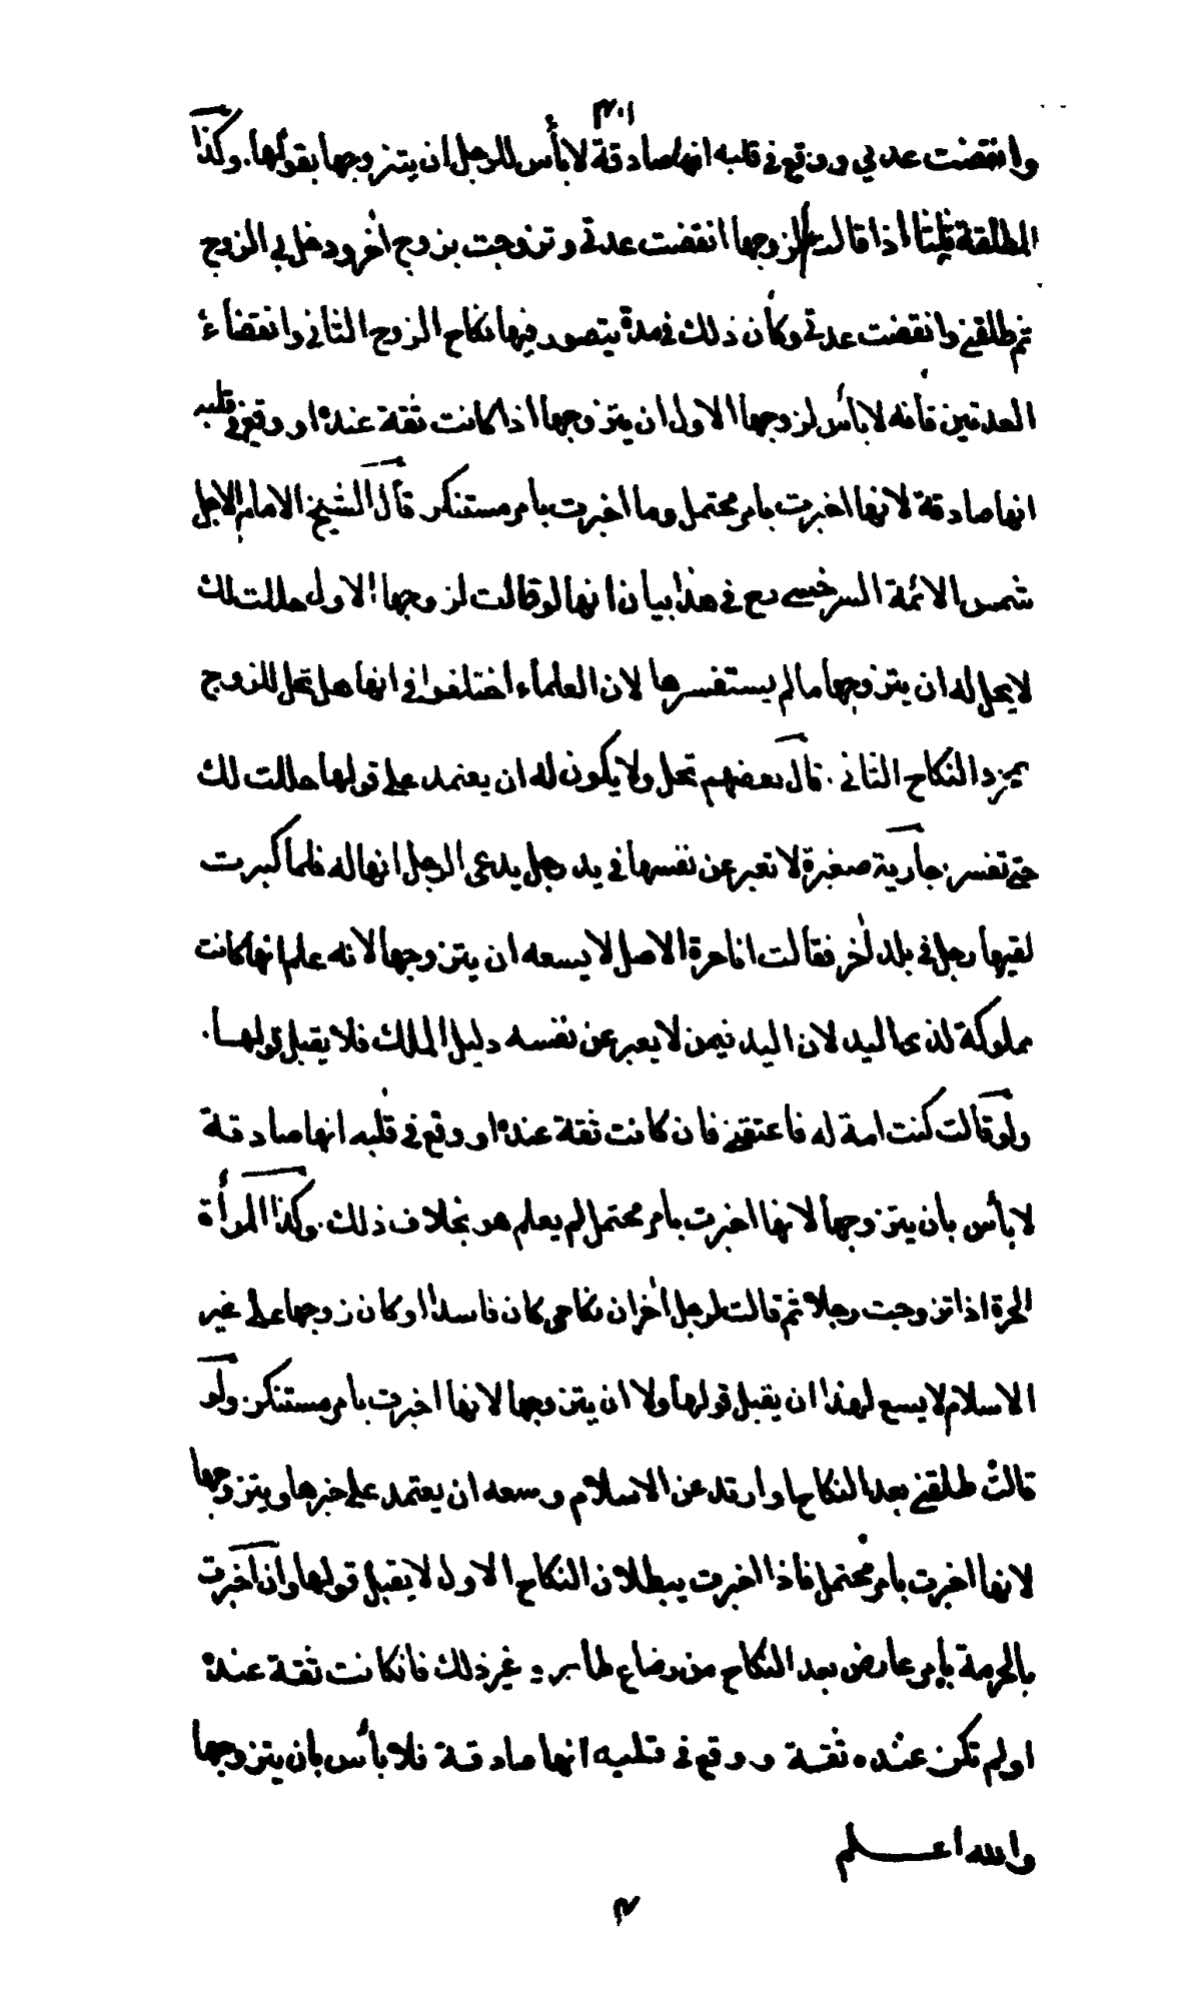 ٣٠١
وانقضت عدتي ووقع في قلبه انها صادقة لا بأس للرجل ان يتزوجها بقولها. وكذا
المطلقة ثلثا اذا قالت لزوجها انقضت عدتي وتزوجت بزوج آخر ودخل بي الزوج
ثم طلقني وانقضت عدتي وكان ذلك في مدة يتصور فيها نكاح الزوج الثاني وانقضاء
العدتين فأنه لا بأس لزوجها الاول ان يتزوجها اذا كانت ثقة عنده او وقع في قلبه
انها صادقة لانها اخبرت بامر محتمل وما اخبرت بامر مستنكر قال الشيخ الامام الاجل
شمس الائمة السرخسي رح في هذا بيان انها لو قالت لزوجها الاول حللت لك
لا يحل له ان يتزوجها ما لم يستفسرها لان العلماء اختلفوا في انها هل تحل للزوج
بمجرد النكاح الثاني. قال بعضهم تحل ولا يكون له ان يعتمد على قولها حللت لك
حتى تفسر. جارية صغيرة لا تعبر عن نفسها في يد رجل يدعى الرجل انها له فلما كبرت
لقيها رجل في بلد آخر فقالت انا حرة الاصل لا يسعه ان يتزوجها لانه علم انها كانت
مملوكة لذي اليد لان اليد فيمن لا يعبر عن نفسه دليل الملك فلا يقبل قولها.
ولو قالت كنت امة له فاعتقني فان كانت ثقة عنده او وقع في قلبه انها صادقة
لا بأس بان يتزوجها لانها اخبرت بامر محتمل لم يعلم هو بخلاف ذلك. وكذا المرأة
الحرة اذا تزوجت رجلا ثم قالت لرجل آخر ان نكاحي كان فاسدا او كان زوجها على غير
الاسلام لا يسع لهذا ان يقبل قولها ولا ان يتزوجها لانها اخبرت بامر مستنكر. ولو
قالت طلقني بعد النكاح او ارتد عن الاسلام وسعه ان يعتمد على خبرها ويتزوجها
لانها اخبرت بامر محتمل فاذا اخبرت ببطلان النكاح الاول لا يقبل قولها وان اخبرت
بالحرمة بامر عارض بعد النكاح من رضاع طار او غير ذلك فانكانت ثقة عنده
او لم تكن عنده ثقة ووقع في قلبه انها صادقة فلا بأس بان يتزوجها
والله اعلم